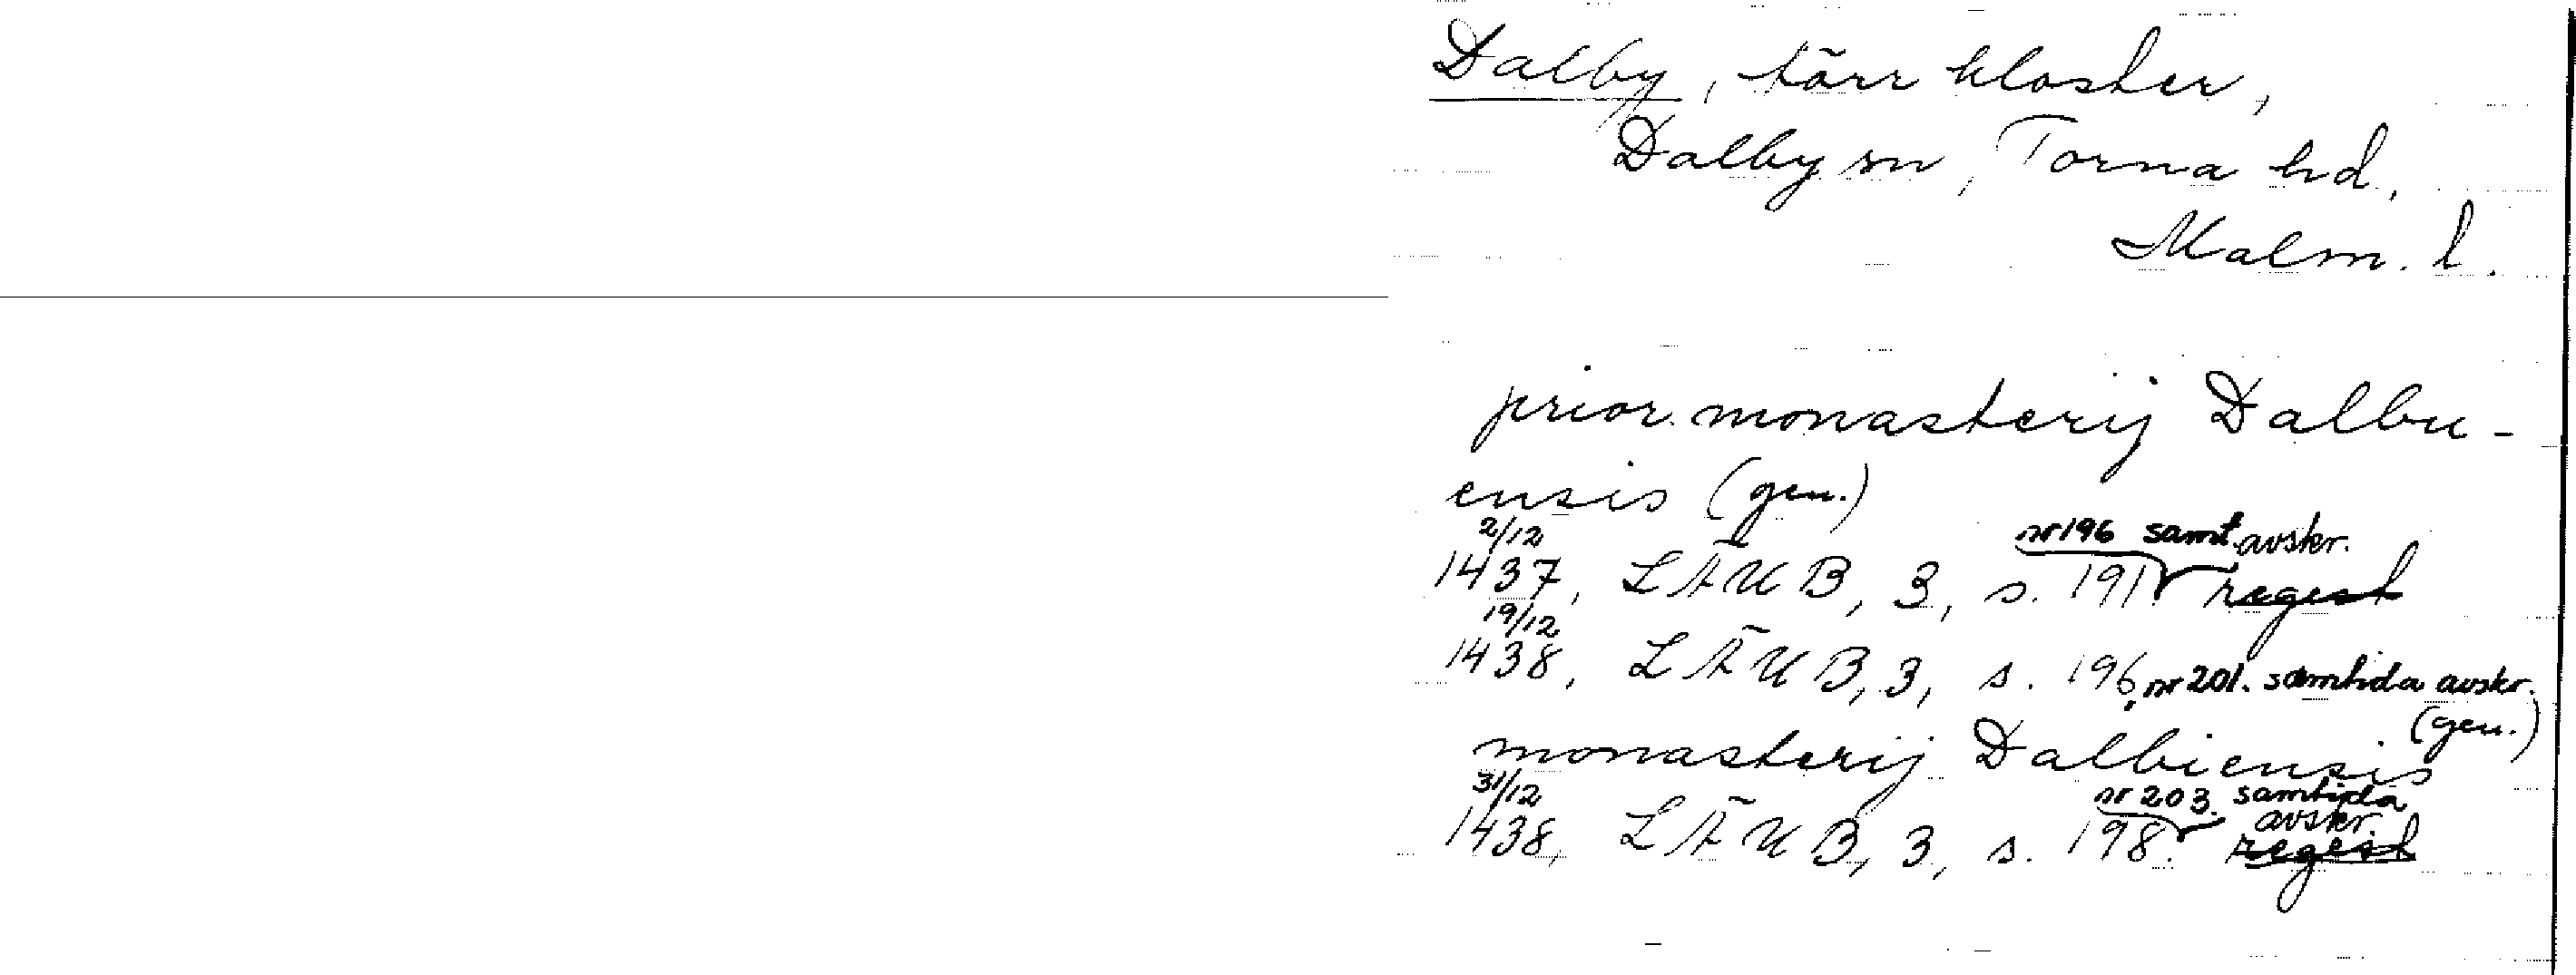 Dalby, törr kloster,
Dalby sn, Torna hd,
Malm. l.
prior monasterij Dalbu-
ensis (gen.)
2/12 nr 196 samt. avskr.
1437, LÄUB, 3, s. 191. regest
19/12
1438, LÄUB, 3, s. 196, nr 201. samtida avskr.
(gen.)
monasterij Dalbiensis
31/12 nr 203. samtida
avskr.
1438, LÄUB, 3, s. 198. regest